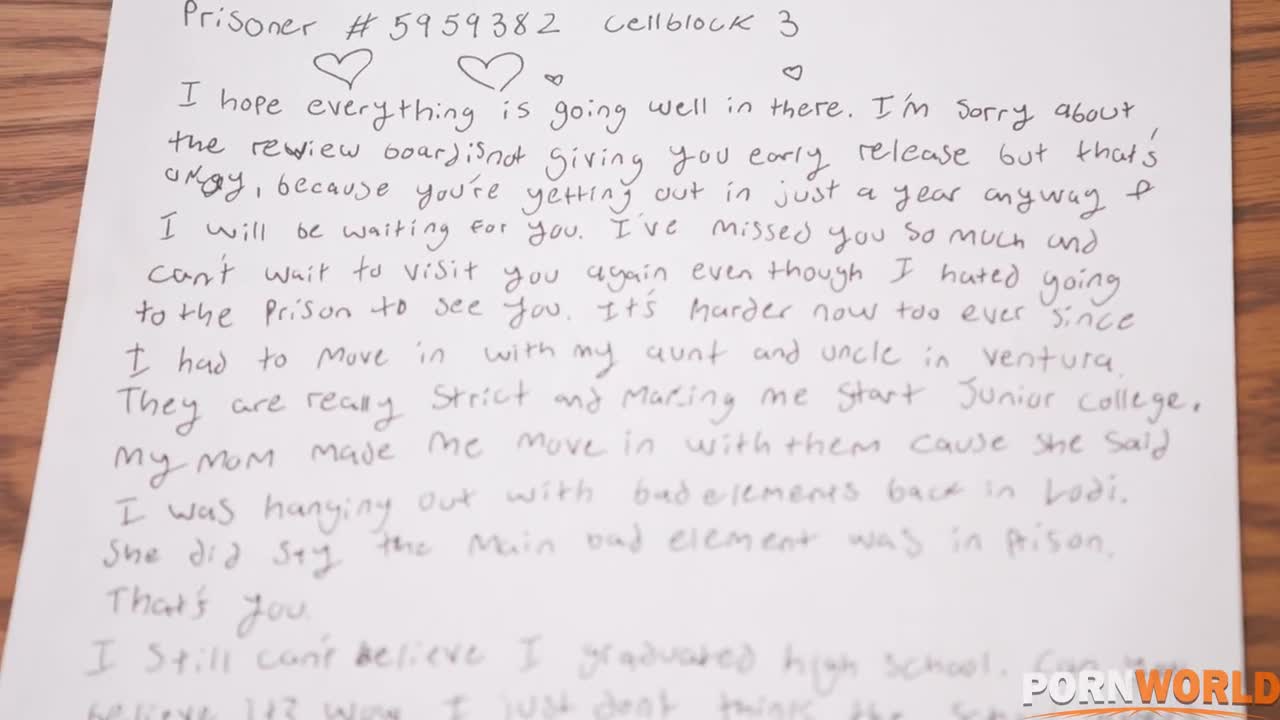 Prisoner # 5959382 Cellblock 3
I hope everything is going well in there. I'm sorry about
the review board is not giving you early release but that's
okay, because you're getting out in just a year anyway &
I will be waiting for you. I've missed you so much and
can't wait to visit you again even though I hated going
to the prison to see you. It's harder now too ever since
I had to move in with my aunt and uncle in Ventura.
They are really strict and making me start Junior college.
My mom made me move in with them cause she said
I was hanging out with bad elements back in Lodi.
She did say the main bad element was in prison.
That's you.
I still can't believe I graduated high school. Can you
believe it? Now I just don't
PORNWORLD